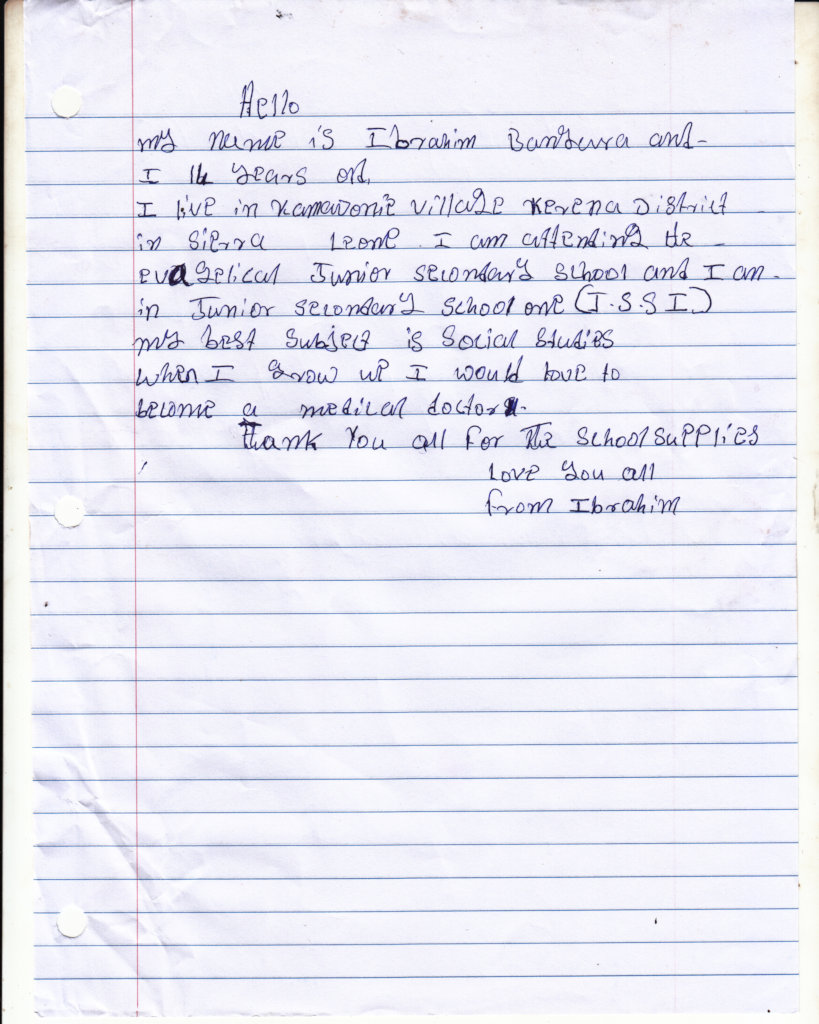 Hello
my name is Ibrahim Bangura and
I 14 years old,
I live in Kamawornie village Kerena District
in Sierra Leone. I am attending the
evagelical Junior secondary school and I am.
in Junior secondary school one (J.S.S I.)
my best subject is social studies
when I grow up I would love to
become a medical doctor.
thank you all for the school supplies
Love you all
from Ibrahim